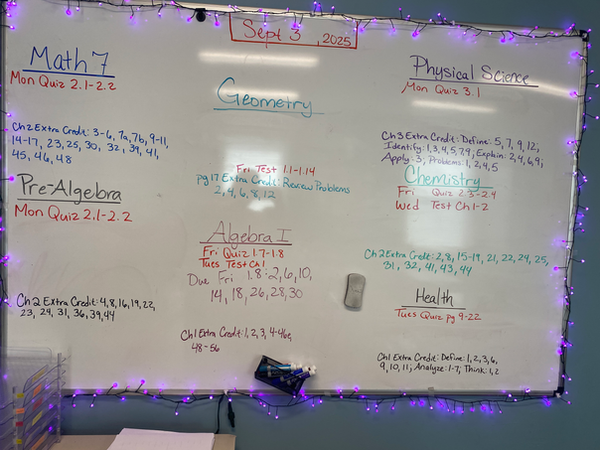 Sept 3, 2025
Math 7
Mon Quiz 2.1-2.2
Ch 2 Extra Credit: 3-6, 7a, 7b, 9-11,
14-17, 23, 25, 30, 32, 39, 41,
45, 46, 48
Pre-Algebra
Mon Quiz 2.1-2.2
Ch 2 Extra Credit: 4, 8, 16, 19, 22,
23, 24, 31, 36, 39, 44
Geometry
Fri Test 1.1-1.14
pg 17 Extra Credit: Review Problems
2, 4, 6, 8, 12
Algebra I
Fri Quiz 1.7-1.8
Tues Test Ch 1
Due Fri 1.8: 2, 6, 10,
14, 18, 26, 28, 30
Ch 1 Extra Credit: 1, 2, 3, 4-46e,
48-56
Physical Science
Mon Quiz 3.1
Ch 3 Extra Credit: Define: 5, 7, 9, 12,
Identify: 1, 3, 4, 5, 7, 9; Explain: 2, 4, 6, 9;
Apply: 3; Problems: 1, 2, 4, 5
Chemistry
Fri Quiz 2.3-2.4
Wed Test Ch 1-2
Ch 2 Extra Credit: 2, 8, 15-19, 21, 22, 24, 25,
31, 32, 41, 43, 44
Health
Tues Quiz pg 9-22
Ch 1 Extra Credit: Define: 1, 2, 3, 6,
9, 10, 11; Analyze: 1-7; Think: 1, 2